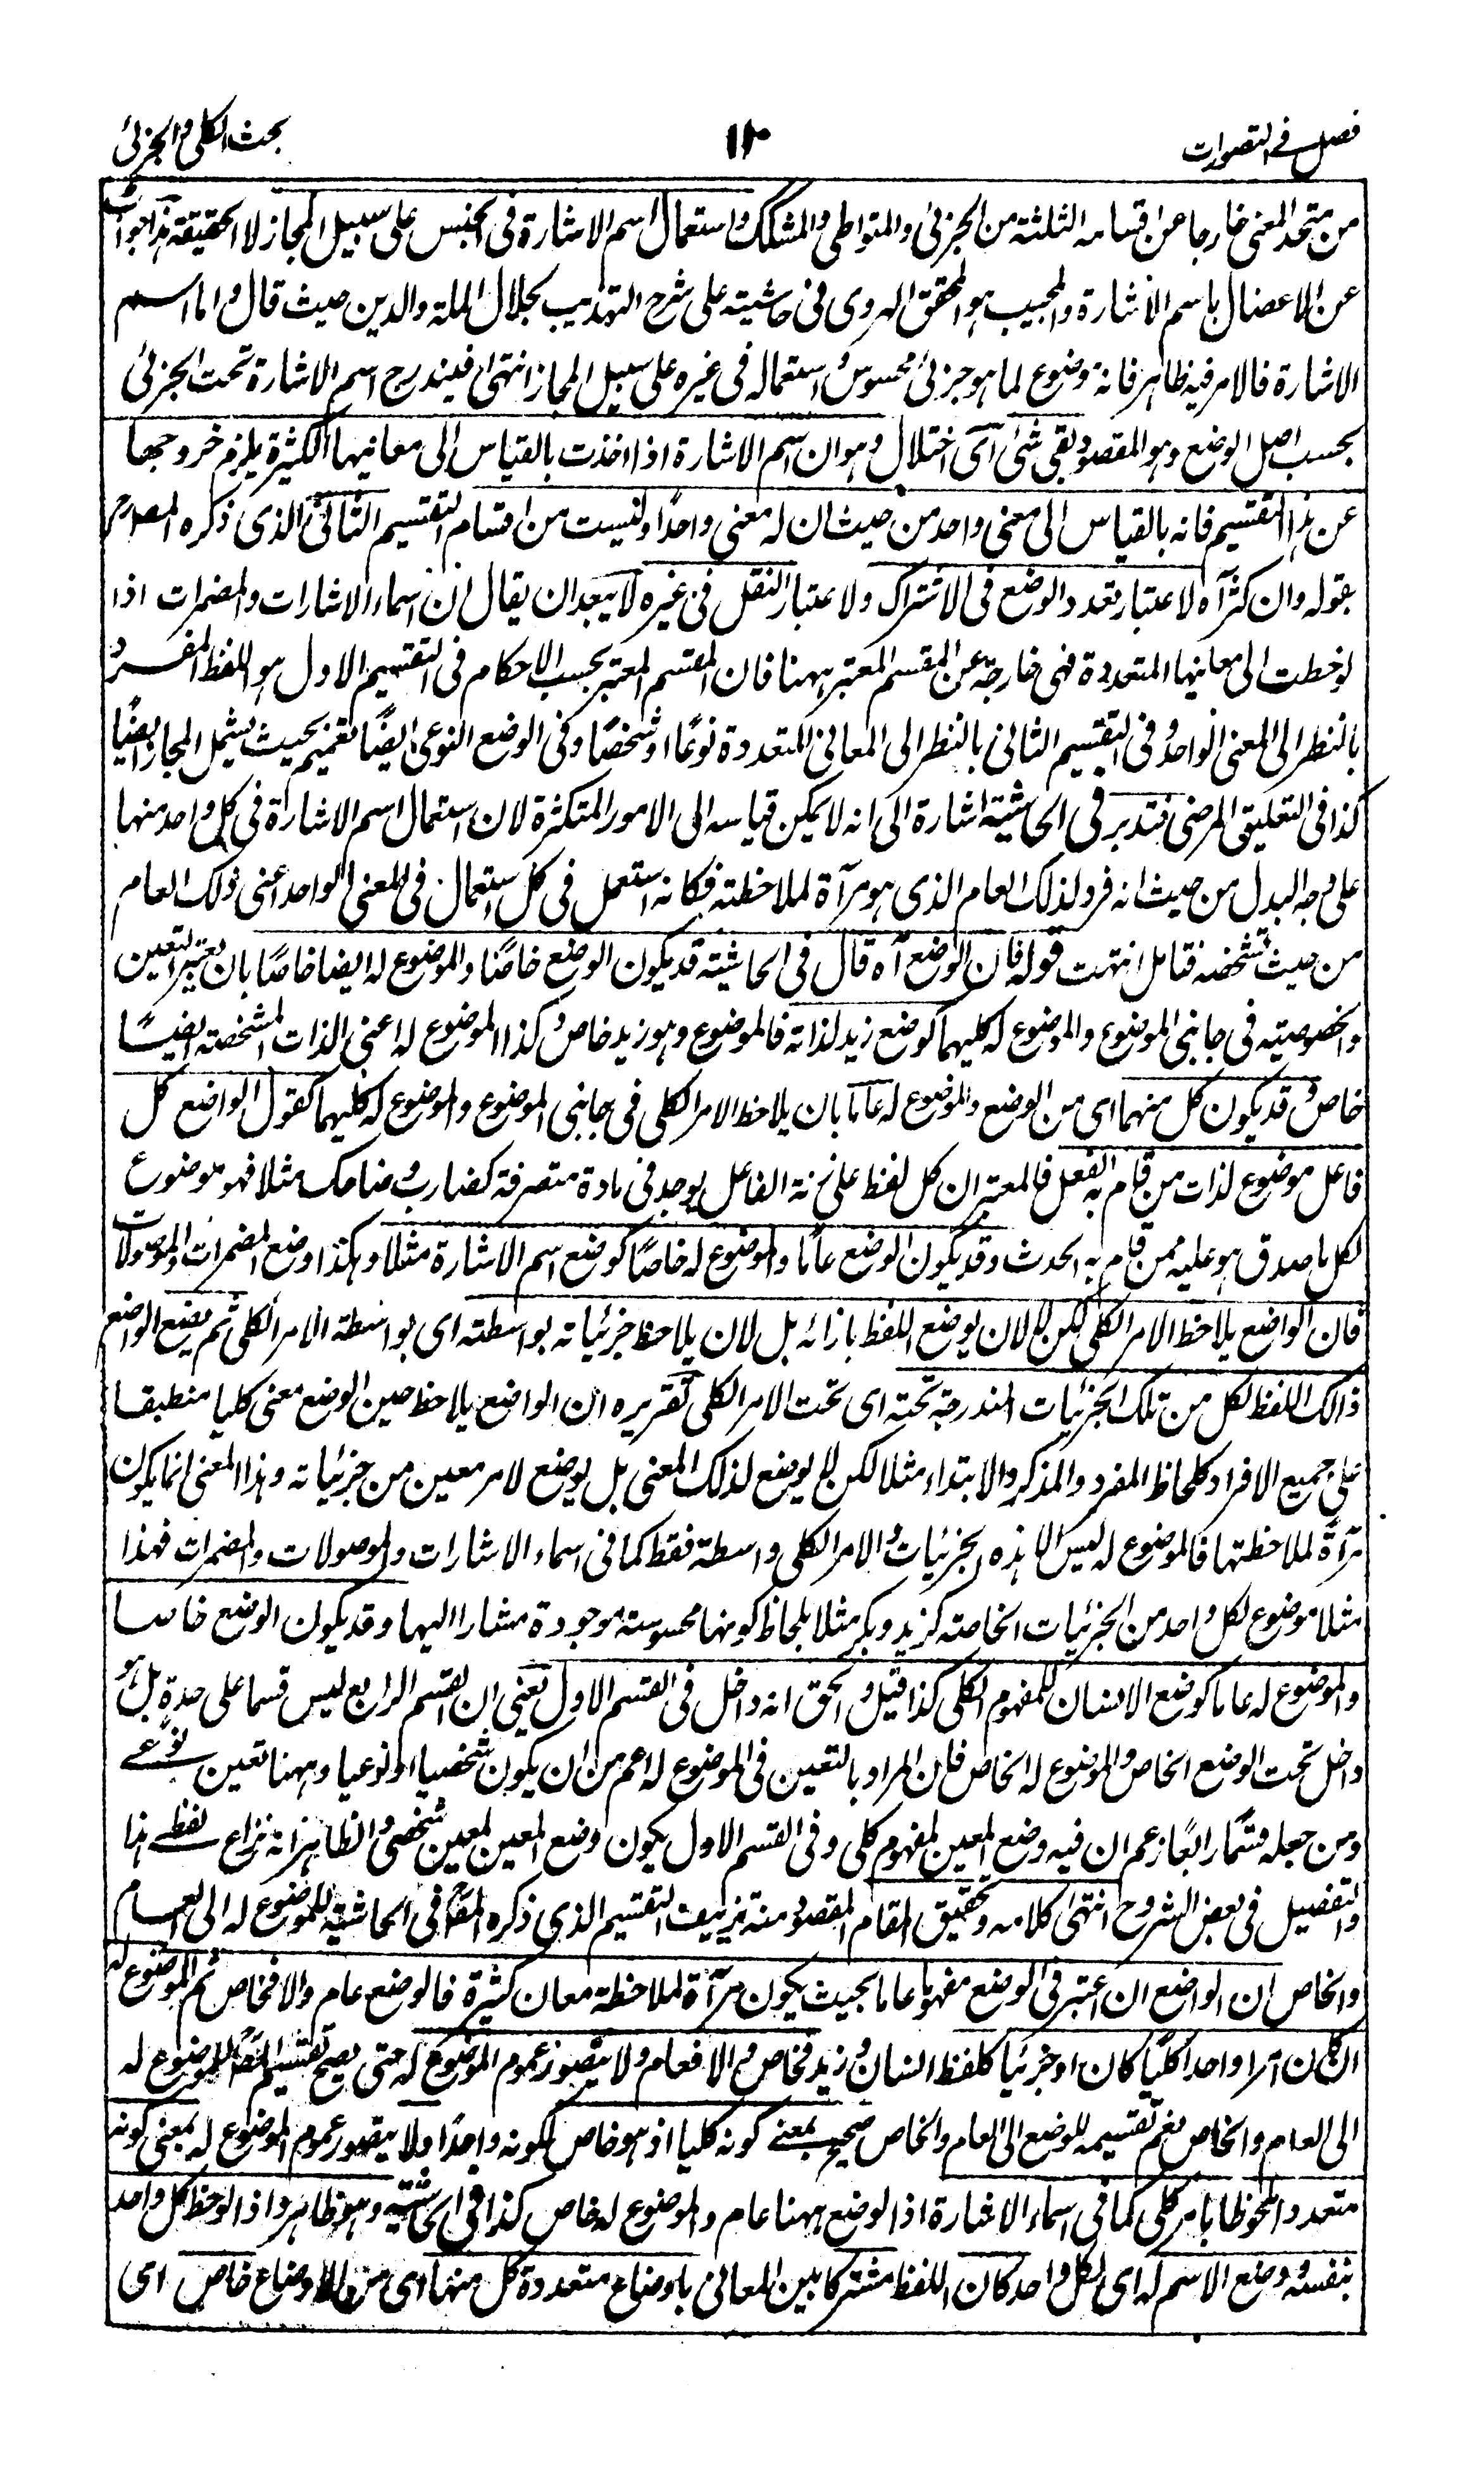 فصل في التصورات
١٢٠
بحث الكلي والجزئي
من متحد المعنى خارجا عن اقسامه الثلثة من الجزئي والمتواطي والمشكك واستعمال اسم الاشارة في الجنس على سبيل المجاز لا الحقيقة هذا جواب
عن الاعضال باسم الاشارة والمجيب هو المحقق الهروى فى حاشيته على شرح التهذيب لجلال الملة والدين حيث قال واما اسم
الاشارة فالامر فيه ظاهر فانه موضوع لما هو جزئي محسوس واستعماله في غيره على سبيل المجاز انتهى فيندرج اسم الاشارة تحت الجزئي
بحسب اصل الوضع وهو المقصود بقى شئ اى اختلال وهو ان اسم الاشارة اذا اخذت بالقياس الى معانيها الكثيرة يلزم خروجها
عن هذا التقسيم فانه بالقياس الى معنى واحد من حيث ان له معنى واحدًا وليست من اقسام التقسيم الثاني الذى ذكره المصدر
بقوله وان كثر آه لاعتبار تعدد الوضع فى الاشتراك ولاعتبار النقل فى غيره لا يبعد ان يقال ان اسماء الاشارات والمضمرات اذا
لوحظت الى معانيها المتعددة فهى خارجة عن المقسم المعتبر ههنا فان المقسم المعتبر بحسب الاحكام فى التقسيم الاول هو اللفظ المفرد
بالنظر الى المعنى الواحد وفى التقسيم الثانى بالنظر الى المعانى المتعددة نوعًا او شخصًا وفى الوضع النوعى ايضًا تعميم بحيث يشمل المجاز ايضًا
كذا فى التعليق المرضى فتدبر فى الحاشية اشارة الى انه لا يمكن قياسه الى الامور المتكثرة لان استعمال اسم الاشارة فى كل واحد منها
على وجه البدل من حيث انه فرد لذلك العام الذى هو مرآة لملاحظته فكانه استعمل فى كل استعمال فى المعنى الواحد اعنى ذلك العام
من حيث تشخصه فتامل انتهت قوله فان الوضع آه قال فى الحاشية قد يكون الوضع خاصًا والموضوع له ايضا خاصًا بان يعتبر التعين
والخصوصية فى جانبى الموضوع والموضوع له كليهما كوضع زيد لذاته فالموضوع وهو زيد خاص وكذا الموضوع له اعنى الذات المشخصة ايضًا
خاص وقد يكون كل منهما اى من الوضع والموضوع له عاما بان يلاحظ الامر الكلى فى جانبى الموضوع والموضوع له كليهما كقول الواضع كل
فاعل موضوع لذات من قام به الفعل فالمعتبر ان كل لفظ على زنة الفاعل يوجد فى مادة متصرفة كضارب وضاحك مثلا فهو موضوع
لكل ما صدق هو عليه ممن قام به الحدث وقد يكون الوضع عامًا والموضوع له خاصًا كوضع اسم الاشارة مثلا وهكذا وضع المضمرات والموصولات
فان الواضع يلاحظ الامر الكلى لكن لا لان يوضع اللفظ بازائه بل لان يلاحظ جزئياته بواسطته اى بواسطة الامر الكلى ثم يضع الواضع
ذالك اللفظ لكل من تلك الجزئيات المندرجة تحته اى تحت الامر الكلى تقريره ان الواضع يلاحظ حين الوضع معنى كليا منطبقا
على جميع الافراد كلحاظ المفرد والمذكر والابتداء مثلا لكن لم يوضع لذلك المعنى بل يوضع لامر معين من جزئياته وهذا المعنى انما يكون
مرآة لملاحظتها فالموضوع له ليس الا هذه الجزئيات والامر الكلى واسطة فقط كما فى اسماء الاشارات والموصولات والمضمرات فهذا
مثلا موضوع لكل واحد من الجزئيات الخاصة كزيد وبكر مثلا بلحاظ كونها محسوسة موجودة مشارا اليها وقد يكون الوضع خاصا
والموضوع له عاما كوضع الانسان للمفهوم الكلى كذا قيل والحق انه داخل فى القسم الاول يعنى ان القسم الرابع ليس قسما على حدة بل هو
داخل تحت الوضع الخاص والموضوع له الخاص فان المراد بالتعين فى الموضوع له اعم من ان يكون شخصيا او نوعيا وههنا تعين نوعى
ومن جعله قسمًا رابعًا زعم ان فيه وضع المعين لمفهوم كلى وفى القسم الاول يكون وضع المعين لمعين شخصى والظاهر انه نزاع لفظى هذا
والتفصيل فى بعض الشروح انتهى كلامه وتحقيق المقام المقصود منه تزييف التقسيم الذى ذكره المص فى الحاشية للموضوع له الى العام
والخاص ان الواضع ان اعتبر فى الوضع مفهوما عاما بحيث يكون مرآة لملاحظة معان كثيرة فالوضع عام والا فخاص ثم الموضوع له
ان كان امرا واحدا كليًا كان او جزئيا كلفظ انسان وزيد فخاص والا فعام ولا يتصور عموم الموضوع له حتى يصح تقسيم المص للموضوع له
الى العام والخاص نعم تقسيمه للوضع الى العام والخاص صحيح بمعنى كونه كليا اذ هو خاص لكونه واحدًا ولا يتصور عموم الموضوع له بمعنى كونه
متعددا ملحوظا بامر كلى كما فى اسماء الاشارة اذ الوضع ههنا عام والموضوع له خاص كذا فى الحاشية وهو ظاهر واذا لوحظ كل واحد
بنفسه ووضع الاسم له اى لكل واحد كان اللفظ مشتركا بين المعانى باوضاع متعددة كل منها اى من الاوضاع خاص اى